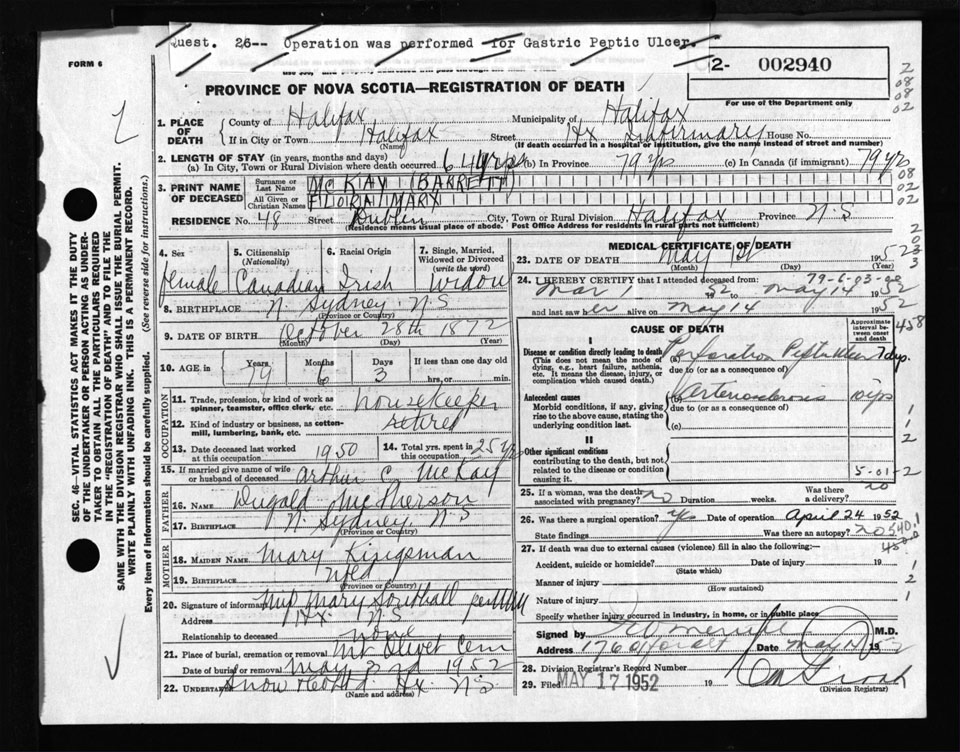 Quest. 26-- Operation was performed for Gastric Peptic Ulcer.
FORM 6
2- 002940
PROVINCE OF NOVA SCOTIA—REGISTRATION OF DEATH
For use of the Department only
1. PLACE OF DEATH County of Halifax Municipality of Halifax
If in City or Town Halifax Street Hx Infirmary House No.
(Name) (If death occurred in a hospital or institution, give the name instead of street and number)
2. LENGTH OF STAY (in years, months and days)
(a) In City, Town or Rural Division where death occurred 64 yrs (b) in Province 79 yrs (c) In Canada (if immigrant) 79 yrs
3. PRINT NAME OF DECEASED Surname or Last Name McKAY (BARRETT)
All Given or Christian Names FLORA MARY
RESIDENCE No. 48 Street Dublin City, Town or Rural Division Halifax Province N.S.
(Residence means usual place of abode. Post Office Address for residents in rural parts not sufficient)
4. Sex 5. Citizenship (Nationality) 6. Racial Origin 7. Single, Married, Widowed or Divorced (write the word)
female Canadian Irish Widow
8. BIRTHPLACE N. Sydney N.S
(Province or Country)
9. DATE OF BIRTH October 28th 1872
(Month) (Day) (Year)
10. AGE Years 79 Months 6 Days 3 If less than one day old hrs, or min.
OCCUPATION
11. Trade, profession, or kind of work as spinner, teamster, office clerk, etc. housekeeper
12. Kind of industry or business, as cotton-mill, lumbering, bank, etc. retired
13. Date deceased last worked at this occupation 1950 14. Total yrs. spent in this occupation 25 yrs
15. If married give name of wife or husband of deceased Arthur C McKay
FATHER
16. NAME Dugald McPherson
17. BIRTHPLACE N. Sydney, N.S
(Province or Country)
MOTHER
18. MAIDEN NAME Mary Kingsman
19. BIRTHPLACE Nfld
(Province or Country)
20. Signature of informant Mrs Mary Southall
Address Hx N.S
Relationship to deceased
21. Place of burial, cremation or removal Mt Olivet Cem
Date of burial or removal May 1952
22. Undertaker Snow Hx. N.S
(Name and address)
MEDICAL CERTIFICATE OF DEATH
23. DATE OF DEATH May 1st 1952
(Month) (Day) (Year)
24. I HEREBY CERTIFY that I attended deceased from:
Mar 1 52 to May 14 1952
and last saw her alive on May 14 1952
CAUSE OF DEATH
Approximate interval between onset and death
I
Disease or condition directly leading to death (This does not mean the mode of dying, e.g., heart failure, asthenia, etc. It means the disease, injury, or complication which caused death.)
(a) Perforation Peptic Ulcer 7 dys.
due to (or as a consequence of)
Antecedent causes
Morbid conditions, if any, giving rise to the above cause, stating the underlying condition last.
(b) Arteriosclerosis
due to (or as a consequence of)
(c)
II
Other significant conditions contributing to the death, but not related to the disease or condition causing it.
5-01-2
25. If a woman, was the death associated with pregnancy? no Duration weeks. Was there a delivery? no
26. Was there a surgical operation? yes Date of operation April 24 1952
State findings Was there an autopsy? no
27. If death was due to external causes (violence) fill in also the following:—
Accident, suicide or homicide? Date of injury 19
(State which)
Manner of injury
(How sustained)
Nature of injury
Specify whether injury occurred in industry, in home, or in public place
Signed by M.D.
Address Date May 19
28. Division Registrar's Record Number
29. Filed MAY 17 1952 19
(Division Registrar)
SEC. 46 — VITAL STATISTICS ACT MAKES IT THE DUTY OF THE UNDERTAKER OR PERSON ACTING AS UNDERTAKER TO OBTAIN ALL THE PARTICULARS REQUIRED IN THE "REGISTRATION OF DEATH" AND TO FILE THE SAME WITH THE DIVISION REGISTRAR WHO SHALL ISSUE THE BURIAL PERMIT.
WRITE PLAINLY WITH UNFADING INK. THIS IS A PERMANENT RECORD.
Every item of information should be carefully supplied. (See reverse side for instructions.)